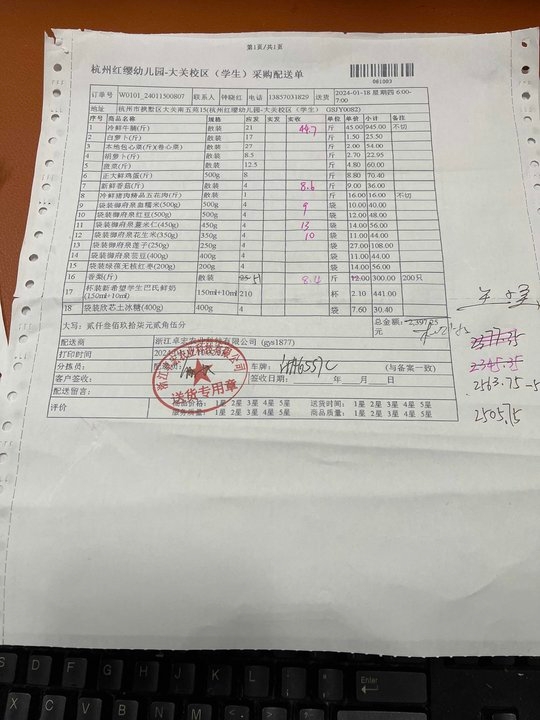 第1页/共1页
杭州红缨幼儿园-大关校区（学生）采购配送单
081003
订单号 W0101_24011500807 联系人 钟晓红 电话 13857031829 送货 2024-01-18 星期四 6:00-7:00
地址 杭州市拱墅区大关南五苑15(杭州红缨幼儿园-大关校区（学生） GSJY0082)
序号 商品名称 规格 应发 实发 实收 单位 单价 小计 备注
1 冷鲜牛腩(斤) 散装 21 44.7 斤 45.00 945.00 不切
2 白萝卜(斤) 散装 17 斤 1.50 25.50
3 本地包心菜(斤)(卷心菜) 散装 27 斤 2.00 54.00
4 胡萝卜(斤) 散装 8.5 斤 2.70 22.95
5 散装 12.5 斤 4.80 60.00
6 正大鲜鸡蛋(斤) 500g 8 斤 8.80 70.40
7 新鲜香菇(斤) 散装 4 8.6 斤 9.00 36.00
8 冷鲜猪肉精品五花肉(斤) 散装 1 斤 16.00 16.00 不切
9 袋装御府泉血糯米(500g) 500g 4 9 袋 10.00 40.00
10 袋装御府泉红豆(500g) 500g 4 袋 12.00 48.00
11 袋装御府泉薏米仁(450g) 450g 4 13 袋 14.00 56.00
12 袋装御府泉花生米(350g) 350g 4 10 袋 11.00 44.00
13 袋装御府泉莲子(250g) 250g 4 袋 27.00 108.00
14 袋装御府泉芸豆(400g) 400g 4 袋 11.00 44.00
15 袋装绿葆无核红枣(200g) 200g 4 袋 14.00 56.00
16 香梨(斤) 散装 25 51 斤 12.00 300.00 200只
17 杯装新希望学生巴氏鲜奶(150ml+10ml) 150ml+10ml 210 杯 2.10 441.00
18 袋装欣芯土冰糖(400g) 400g 4 袋 7.60 30.40
大写：贰仟叁佰玖拾柒元贰角伍分 总金额：2,397.25元
配送商 浙江卓宏农业科技有限公司 (gys1877)
打印时间
分拣员： 配送员： 车牌： (与备案一致)
客户签收： 签收日期： 年 月 日
配送留言：
评价 商品价格： 1星 2星 3星 4星 5星 送货时间： 1星 2星 3星 4星 5星
服务质量： 1星 2星 3星 4星 5星 商品质量： 1星 2星 3星 4星 5星
送货专用章
2377.25
2345.25
2563.75-5
2505.75
S D F G H J K L Enter
X C V B N M